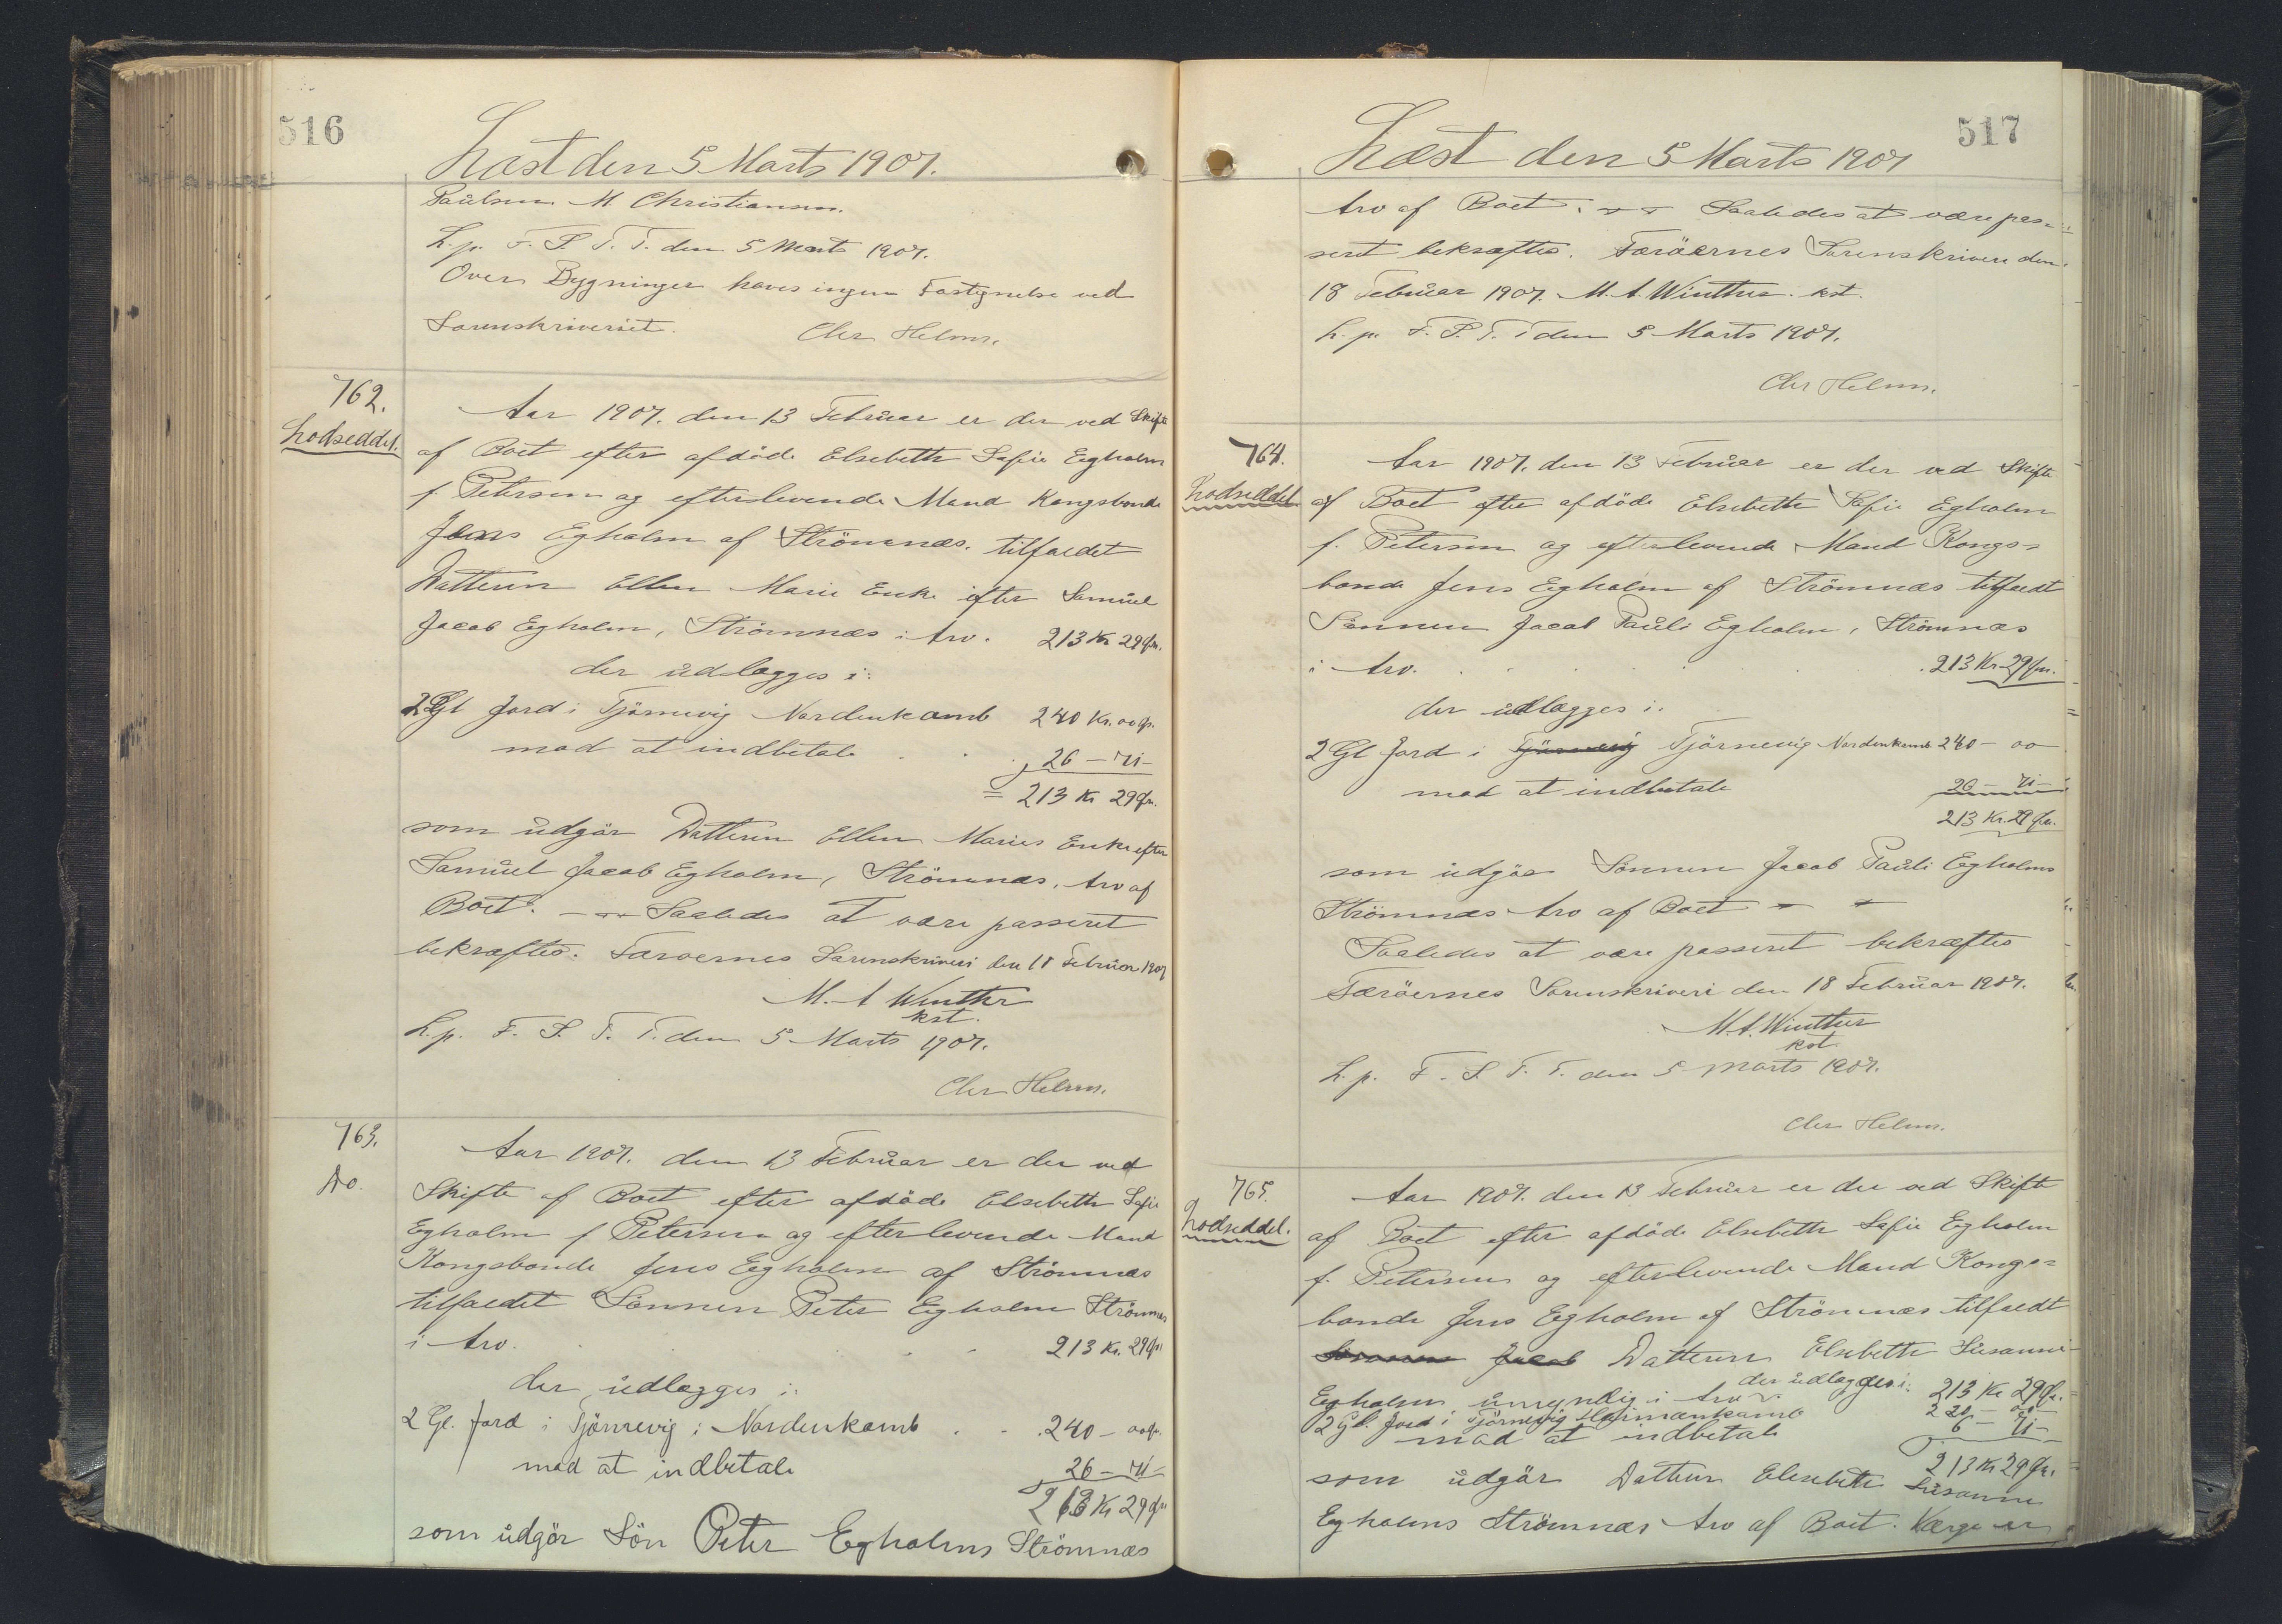 516
Læst den 5 Marts 1907.
Paulsen M. Christiansen.
L. p. F. S. T. T. den 5 Marts 1907.
Over Bygninger haves ingen Fastegnelse ved
Sorenskriveriet. Chr Helms.
762.
Lodseddel.
Aar 1907. den 13 Februar er der ved Skifte
af Boet efter afdöde Elsebeth Sofie Egholm
f. Petersen og efterlevende Mand Kongsbonde
Jens Egholm af Strömnæs. tilfaldet
Datteren Ellen Marie Enke efter Samuel
Jacob Egholm, Strömnæs i Arv. 213 Kr 29 Øre.
der udlægges i:
2 Gl Jord i Tjörnevig Nordenkamb 240 Kr. 00 Ør.
mod at indbetale 26 - 71 -
= 213 Kr 29 Ør.
som udgör Datteren Ellen Maries Enke efter
Samuel Jacob Egholm, Strömnæs, Arv af
Boet. - Saaledes at være passeret
bekræftes. Færoernes Sorenskriveri den 18 Februar 1907
M. A Winther
kst.
L. p. F. S. T. T. den 5 Marts 1907.
Chr Helms.
763.
Do.
Aar 1907. den 13 Februar er der ved
Skifte af Boet efter afdöde Elsebeth Sofie
Egholm f Petersen og efterlevende Mand
Kongsbonde Jens Egholm af Strömnæs
tilfaldet Sönnen Peter Egholm Strömnæs
i Arv. 213 Kr. 29 Ør
der udlægges i:
2 Gl. Jord i Tjörnevig i Nordenkamb 240 - 00 Ør.
mod at indbetale 26 - 71 -
213 Kr 29 Ør
som udgör Sön Peter Egholms Strömnæs
517
Læst den 5 Marts 1907
Arv af Boet. Saaledes at være pas=
seret bekræftes. Færöernes Sorenskriveri den
18 Februar 1907. M. A. Winther. kst.
L. p. F. S. T. T den 5 Marts 1907.
Chr Helms.
764.
Lodseddel
Aar 1907. den 13 Februar er der ved Skifte
af Boet efter afdöde Elsebeth Sofie Egholm
f. Petersen og efterlevende Mand Kongs=
bonde Jens Egholm af Strömnæs tilfaldt
Sönnen Jacob Pauli Egholm, Strömnæs
i Arv. 213 Kr. 29 Ør.
der udlægges i.
2 Gl Jord i Tjörnevig Tjörnevig Nordenkamb 240 - 00
mod at indbetale 26 - 71 -
213 Kr. 29 Ør.
som udgör Sönnen Jacob Pauli Egholms
Strömnæs Arv af Boet
Saaledes at være passeret bekræftes
Færöernes Sorenskriveri den 18 Februar 1907.
M. A. Winther
kst.
L. p. F. S. T. T. den 5 Marts 1907.
Chr Helms.
765.
Lodseddel.
Aar 1907. den 13 Februar er der ved Skifte
af Boet efter afdöde Elsebeth Sofie Egholm
f. Petersen og efterlevende Mand Kongs=
bonde Jens Egholm af Strömnæs tilfaldt
Sönnen Jacob Datteren Elsebeth Susanne
Egholm umyndig i Arv der udlægges i: 213 Kr 29 Ør.
2 Gl. Jord i Tjörnevig Heimænkamb 220 - 00
mod at indbetale 6 - 71 -
213 Kr 29 Ør.
som udgör Datteren Elsebeth Susanne
Egholms Strömnæs Arv af Boet. Værge er